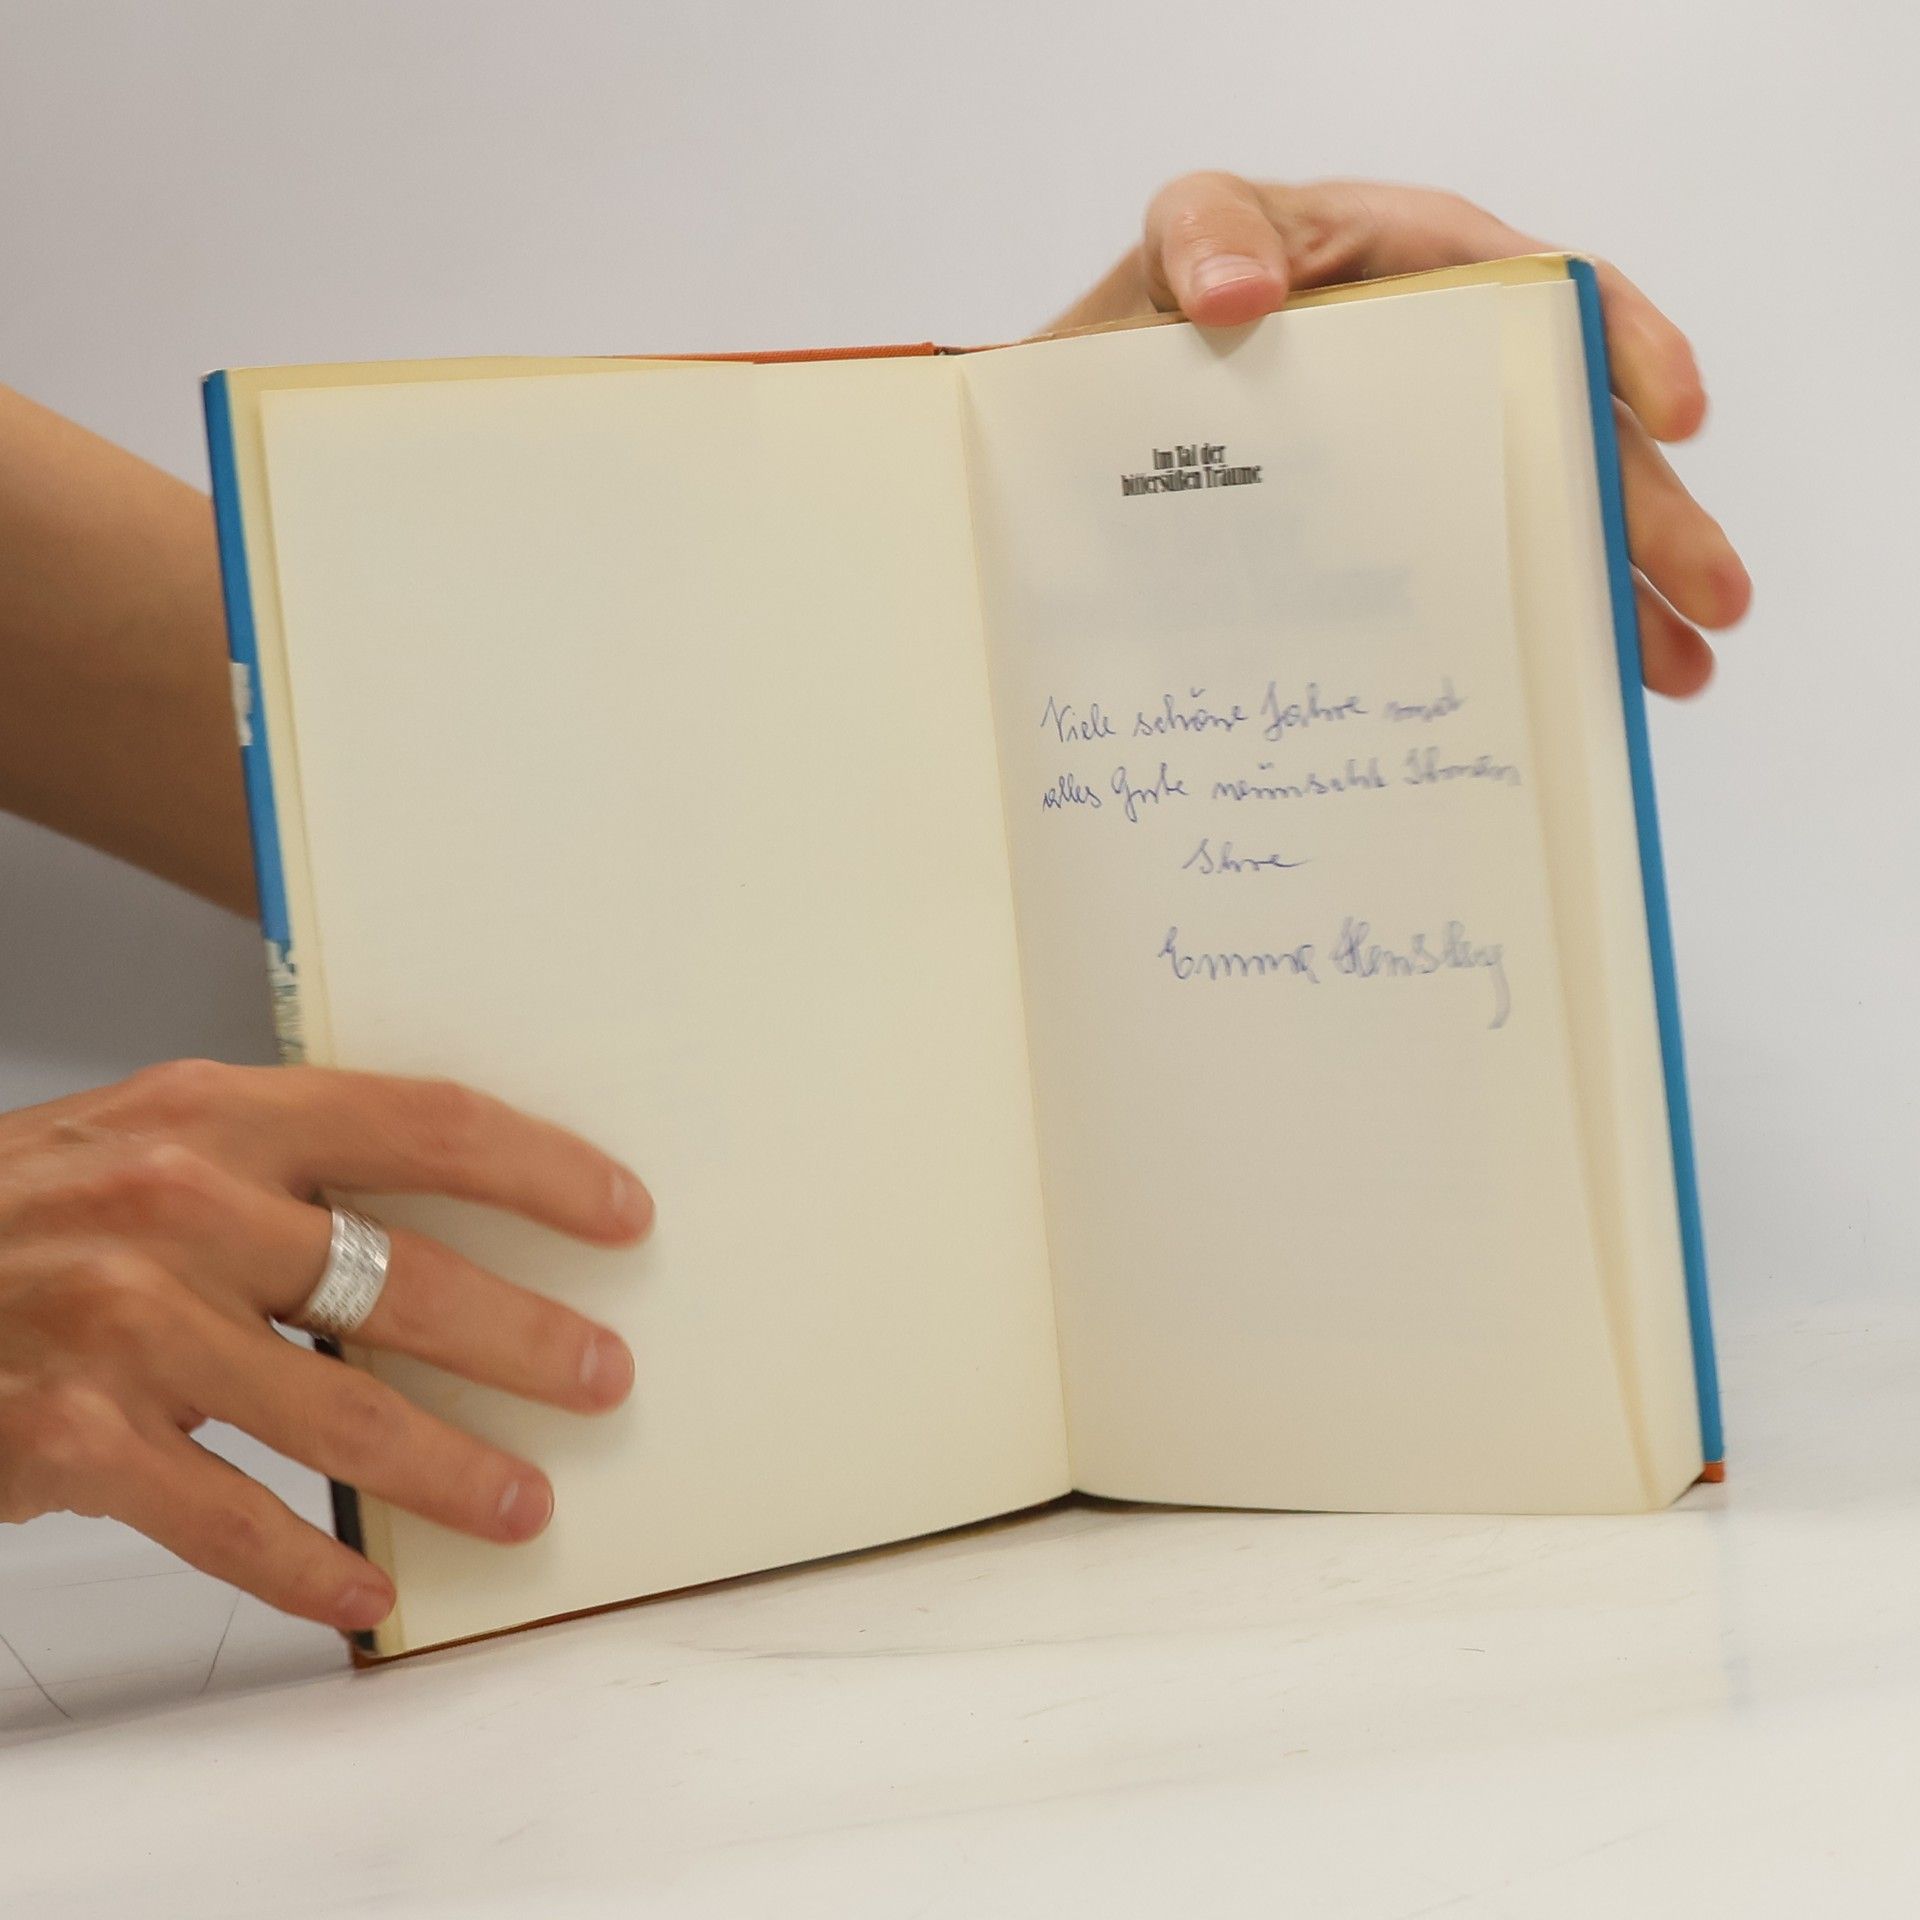 Im Tal der
bittersüßen Träume
Viele schöne Jahre und
alles Gute wünscht Ihnen
Ihre
Emma